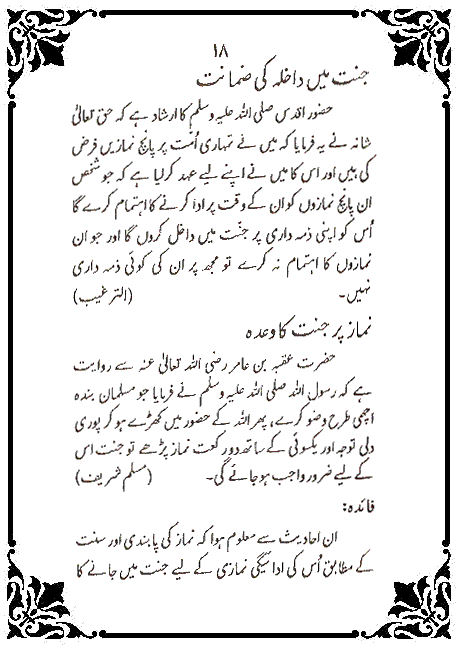 ۱۸
جنت میں داخلہ کی ضمانت
حضور اقدس صلی اللہ علیہ وسلم کا ارشاد ہے کہ حق تعالیٰ
شانہ نے یہ فرمایا کہ میں نے تمہاری اُمت پر پانچ نمازیں فرض
کی ہیں اور اس کا میں نے اپنے لیے عہد کر لیا ہے کہ جو شخص
ان پانچ نمازوں کو ان کے وقت پر ادا کرنے کا اہتمام کرے گا
اُس کو اپنی ذمہ داری پر جنّت میں داخل کروں گا اور جو ان
نمازوں کا اہتمام نہ کرے تو مجھ پر ان کی کوئی ذمہ داری
نہیں۔ (الترغیب)
نماز پر جنت کا وعدہ
حضرت عقبہ بن عامر رضی اللہ تعالیٰ عنہ سے روایت
ہے کہ رسول اللہ صلی اللہ علیہ وسلم نے فرمایا جو مسلمان بندہ
اچھی طرح وضو کرے، پھر اللہ کے حضور میں کھڑے ہو کر پوری
دلی توجہ اور یکسوئی کے ساتھ دو رکعت نماز پڑھے تو جنت اس
کے لیے ضرور واجب ہو جائے گی۔ (مسلم شریف)
فائدہ:
ان احادیث سے معلوم ہوا کہ نماز کی پابندی اور سنت
کے مطابق اُس کی ادائیگی نمازی کے لیے جنت میں جانے کا